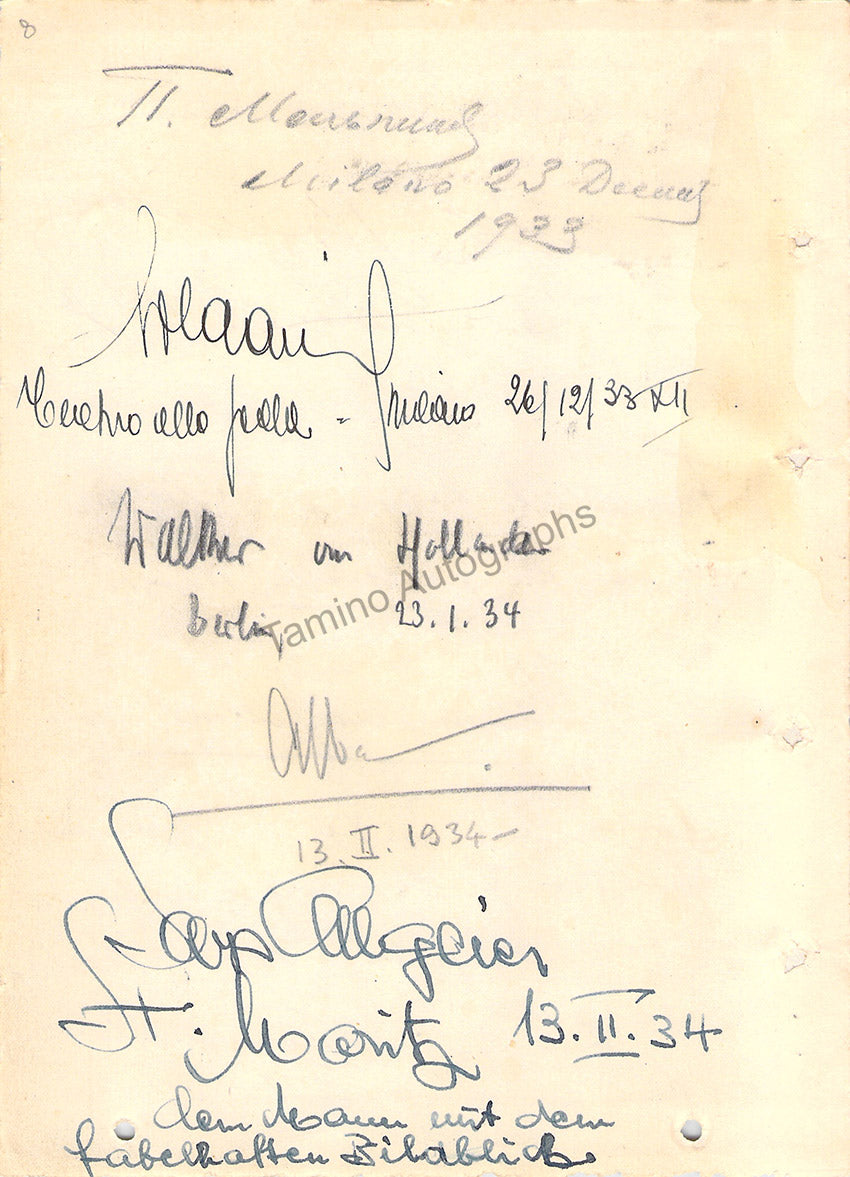 8
П.
Milano 23
1933
Teatro alla Scala - Milano 26/12/33 XII
Walther von Hollander
Berlin 23.1.34
Tamino Autographs
Alba
13.II.1934-
Sepp Allgeier
St. Moritz 13.II.34
dem Mann mit dem
fabelhaften Bildblick